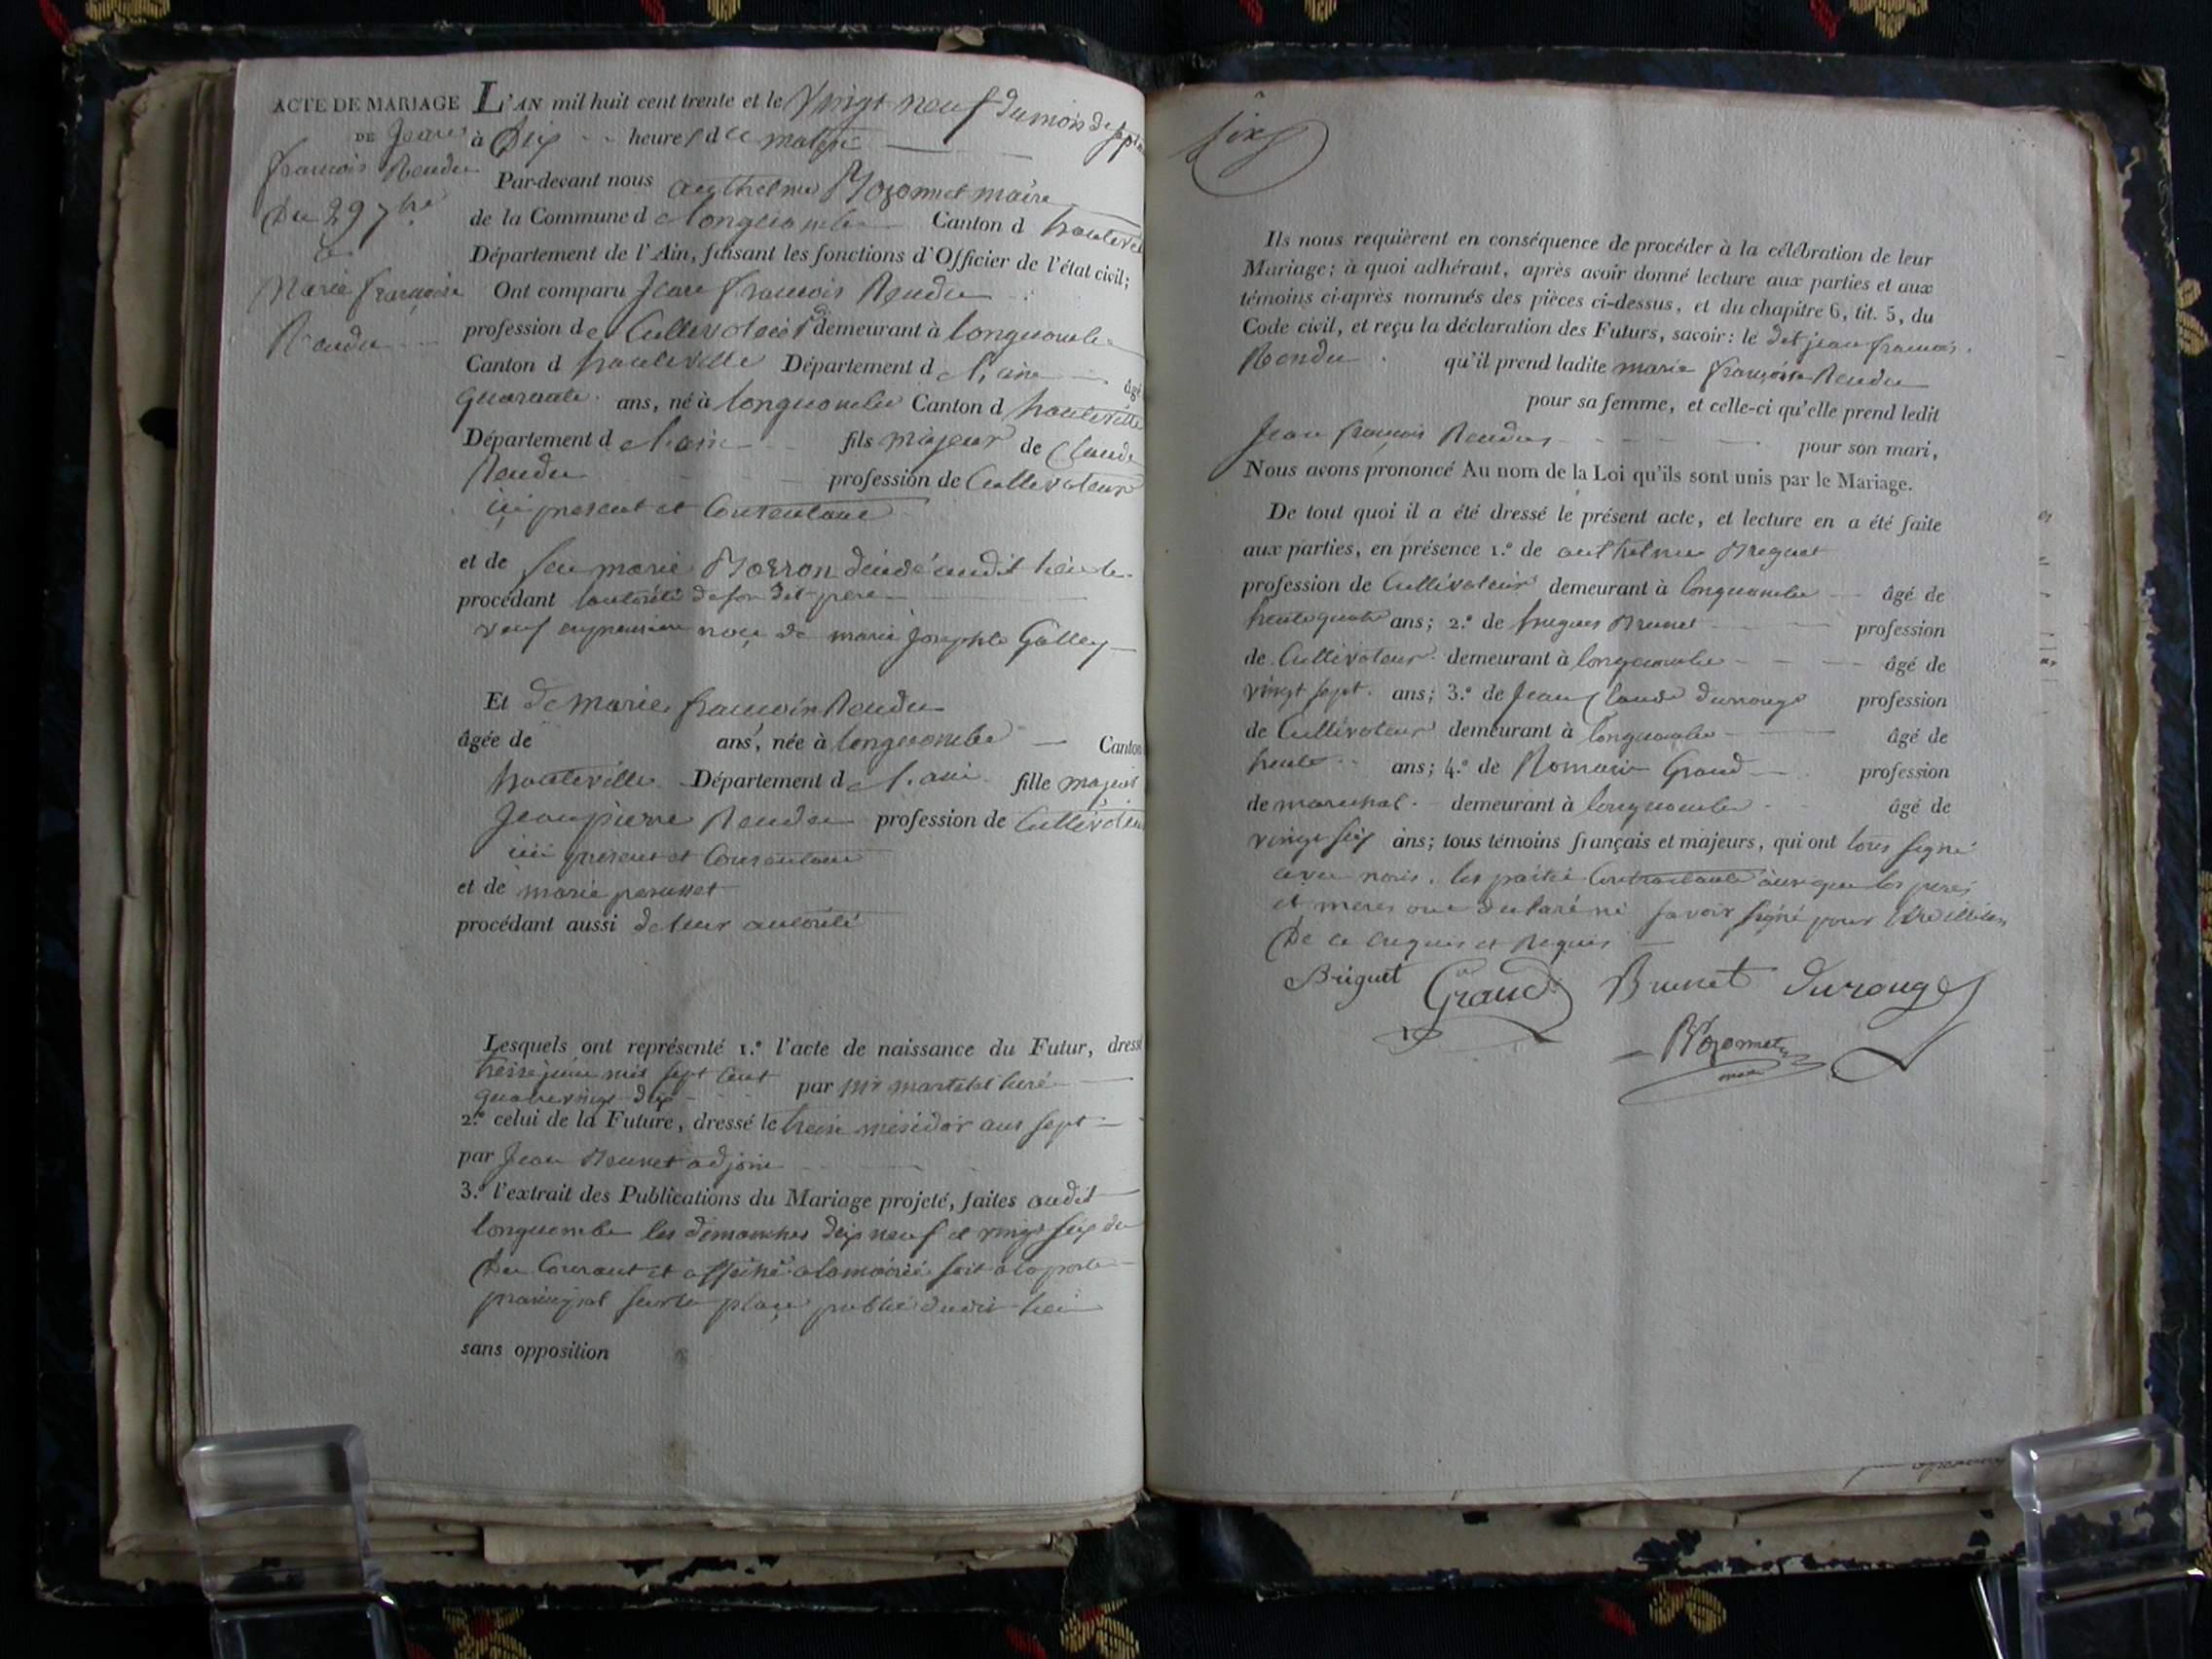 ACTE DE MARIAGE
DE Jean
francois Rendu
Du 29 7bre
Et
Marie françoise
Rendu
L'AN mil huit cent trente et le Vingt neuf du mois de
à Dix heures d u matin
Par-devant nous anthelme Rozonnet maire
de la Commune d e longecombe Canton d hauteville
Département de l'Ain, faisant les fonctions d'Officier de l'état civil;
Ont comparu Jean francois Rendu
profession de Cultivateur demeurant à longecombe
Canton d hauteville Département d e l'ain âgé
quarante ans, né à longecombe Canton d hauteville
Département d e l'ain fils majeur de Claude
Rendu profession de Cultivateur
ici present et Consentant
et de feu marie décédé audit lieu
procédant l'autorité de son dit pere
veuf en premiere noce de marie josephte Golley
Et de Marie francoise Rendu
âgée de ans, née à longecombe Canton
hauteville Département d e l'ain fille majeur
Jean pierre Rendu profession de Cultivateur
ici present et Consentant
et de marie perusset
procédant aussi de leur autorité
Lesquels ont représenté 1.º l'acte de naissance du Futur, dressé
treize juin mil sept Cent par mr martelet Curé
quatrevingt dix
2.º celui de la Future, dressé le treize mésidor ans sept
par Jean Brunet adjoint
3.º l'extrait des Publications du Mariage projeté, faites audit
longecombe les dimanches dix neuf et vingt six du
Du Courant et affiché a la mairie soit a la porte
principal sur la place public dudit lieu
sans opposition
Ils nous requièrent en conséquence de procéder à la célébration de leur
Mariage; à quoi adhérant, après avoir donné lecture aux parties et aux
témoins ci-après nommés des pièces ci-dessus, et du chapitre 6, tit. 5, du
Code civil, et reçu la déclaration des Futurs, savoir: le dit jean francois
Rendu qu'il prend ladite marie françoise Rendu
pour sa femme, et celle-ci qu'elle prend ledit
Jean francois Rendu pour son mari,
Nous avons prononcé Au nom de la Loi qu'ils sont unis par le Mariage.
De tout quoi il a été dressé le présent acte, et lecture en a été faite
aux parties, en présence 1.º de anthelme Breguet
profession de Cultivateur demeurant à longecombe âgé de
trente quatre ans; 2.º de hugues Brunet profession
de Cultivateur demeurant à longecombe âgé de
vingt sept ans; 3.º de Jean Claude durouge profession
de Cultivateur demeurant à longecombe âgé de
trente ans; 4.º de Romain Grand profession
de marechal demeurant à longecombe âgé de
vingt six ans; tous témoins français et majeurs, qui ont tous signé
avec nous, les partie Contractante ainsi que les peres
et meres ont declaré ne savoir signé pour
De ce enquis et Requis
Briguet Grand Brunet durouge
Rozonnet
maire